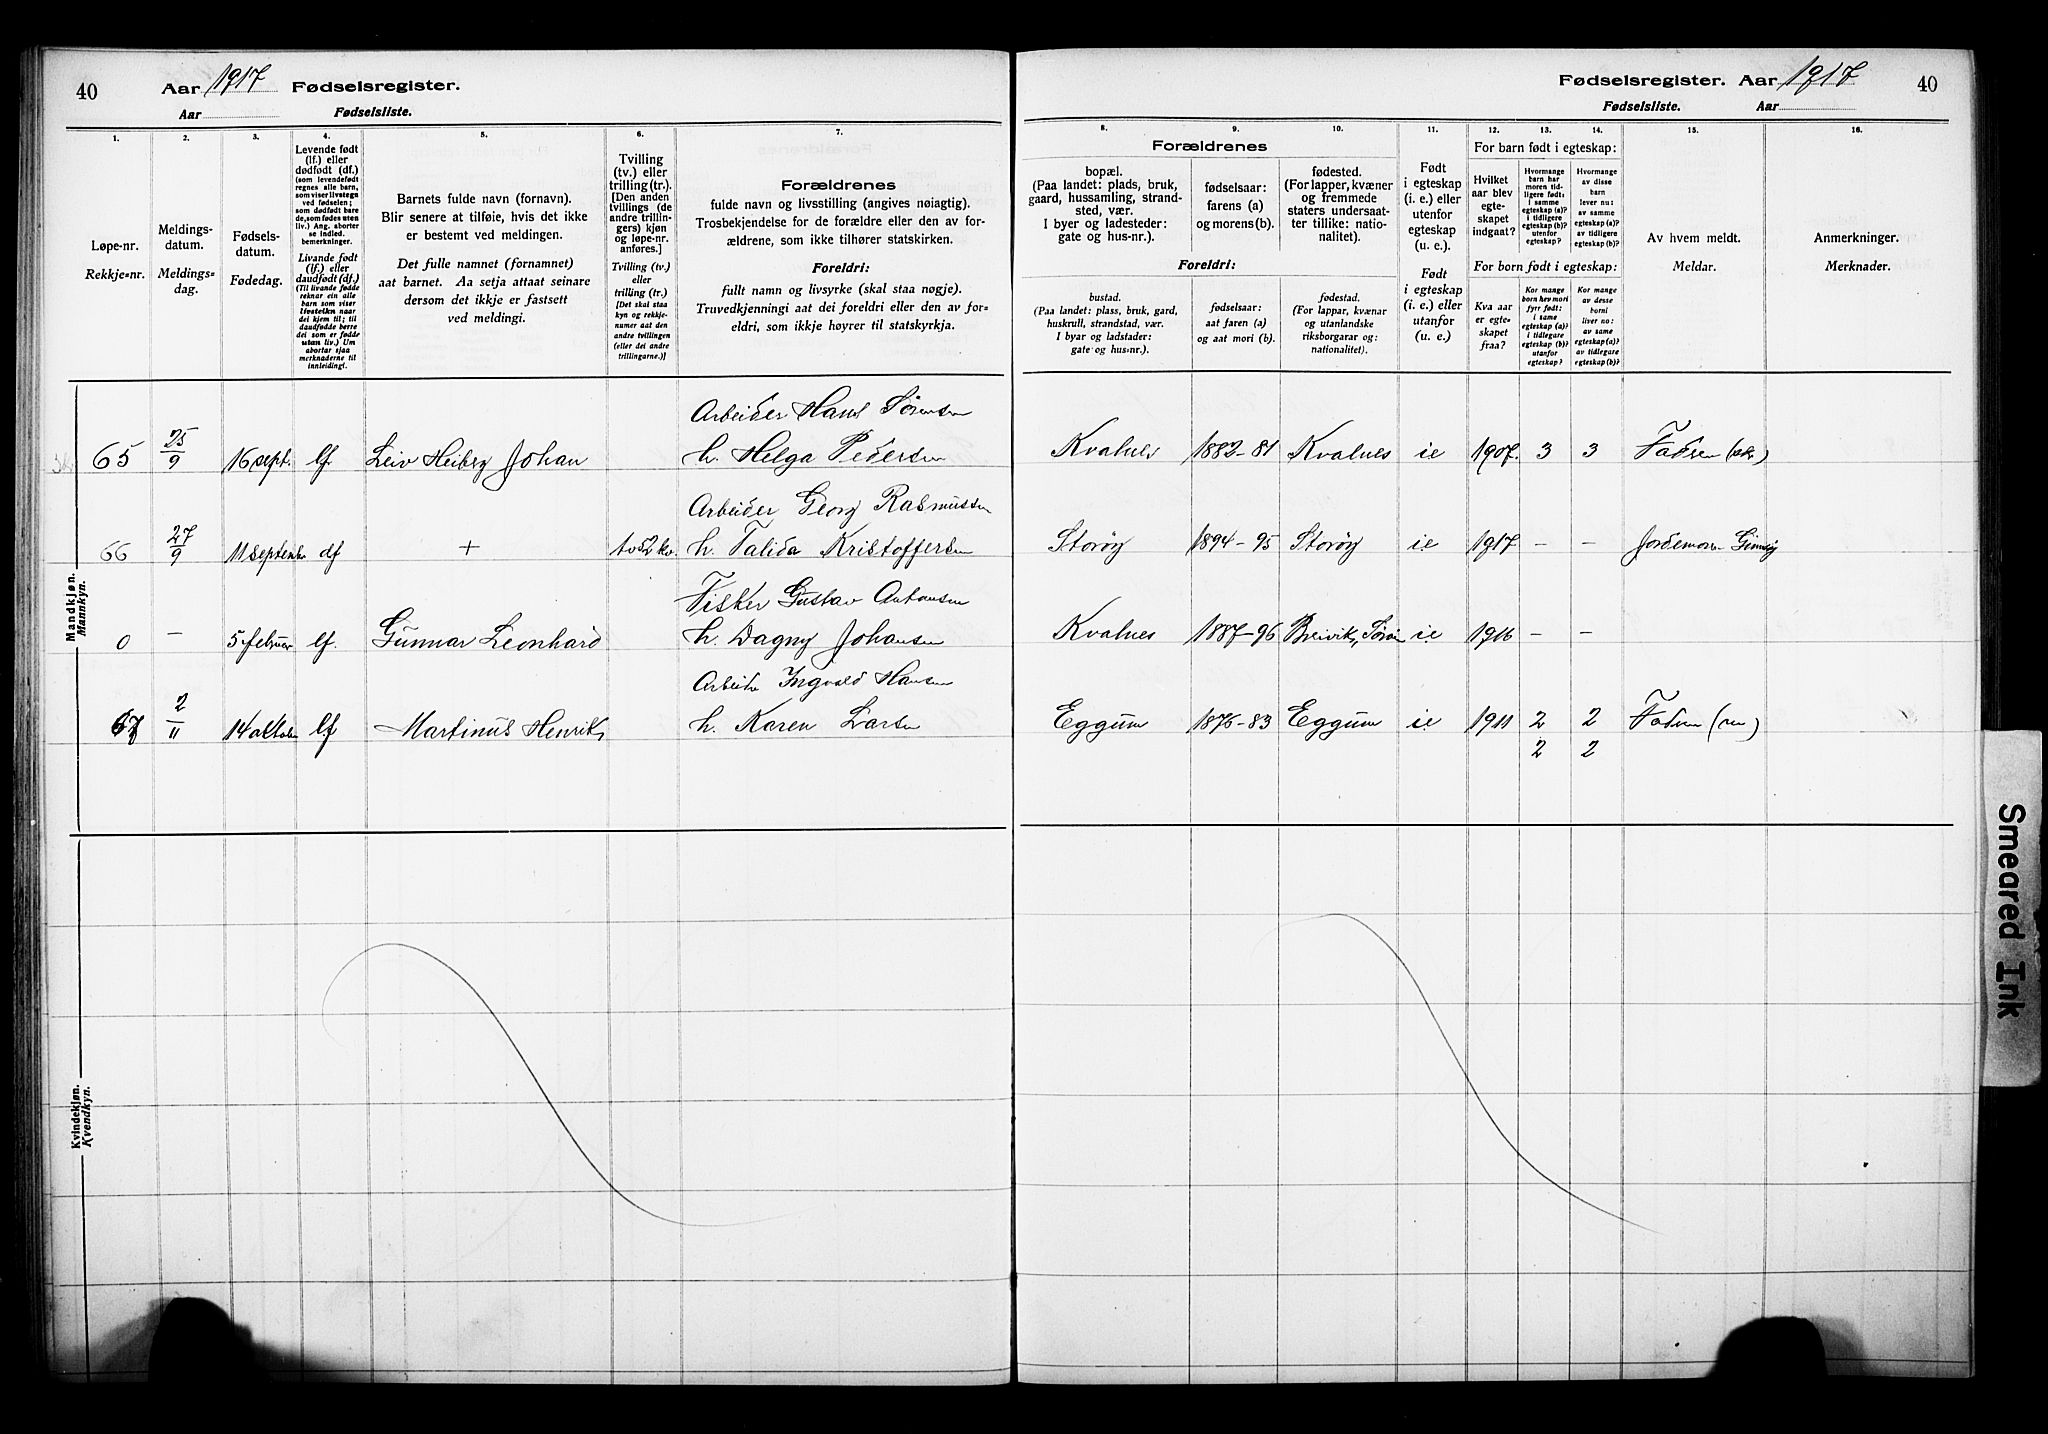 40
Aar 1917 Fødselsregister.
Aar Fødselsliste.
1. 2. 3. 4. 5. 6. 7.
Løpe-nr.
Rekkje-nr.
Meldings-
datum.
Meldings-
dag.
Fødsels-
datum.
Fødedag.
Levende født
(lf.) eller
dødfødt (df.)
(som levendefødt
regnes alle barn,
som viser livstegn
ved fødselen;
som dødfødt bare
de, som fødes uten
liv.) Ang. aborter
se indled.
bemerkninger.
Livande født
(lf.) eller
daudfødt (df.)
(Til livande fødde
reknar ein alle
barn som viser
livsteikn naar
dei kjem til; til
daudfødde berre
dei som er fødde
utan liv.) Um
abortar sjaa
merknaderne til
innleidingi.
Barnets fulde navn (fornavn).
Blir senere at tilføie, hvis det ikke
er bestemt ved meldingen.
Det fulle namnet (fornamnet)
aat barnet. Aa setja attaat seinare
dersom det ikkje er fastsett
ved meldingi.
Tvilling
(tv.) eller
trilling (tr.).
[Den anden
tvillings (de
andre trillin-
gers) kjøn
og løpe-nr.
anføres.]
Tvilling (tv.)
eller
trilling (tr.)
[Det skal staa
kyn og rekkje-
numer aat den
andre tvillingen
(eller dei andre
trillingarne.)]
Forældrenes
fulde navn og livsstilling (angives nøiagtig).
Trosbekjendelse for de forældre eller den av for-
ældrene, som ikke tilhører statskirken.
Foreldri:
fullt namn og livsyrke (skal staa nøgje).
Truvedkjenningi aat dei foreldri eller den av for-
eldri, som ikkje høyrer til statskyrkja.
Mandkjøn.
Mannkyn.
Arbeider Hans Sørensen
65 25/9 16 sept. lf. Leiv Heiberg Johan h. Helga Pedersen
Arbeider Georg Rasmussen
66 27/9 11 septembr df + tv 52 kv. h. Talida Kristoffersen
Fisker Gustav Antonsen
0 – 5 februar lf. Gunnar Leonhard h. Dagny Johansen
Arbeider Ingvald Hansen
67 2/11 14 oktober lf Martinus Henrik, h. Karen Larsen
Kvindekjøn.
Kvendkyn.
Fødselsregister. Aar 1917 40
Fødselsliste. Aar
8. 9. 10. 11. 12. 13. 14. 15. 16.
Forældrenes
bopæl.
(Paa landet: plads, bruk,
gaard, hussamling, strand-
sted, vær.
I byer og ladesteder:
gate og hus-nr.).
fødselsaar:
farens (a)
og morens (b).
fødested.
(For lapper, kvæner
og fremmede
staters undersaat-
ter tillike: natio-
nalitet).
Foreldri:
bustad.
(Paa landet: plass, bruk, gard,
huskrull, strandstad, vær.
I byar og ladstader:
gate og hus-nr.).
fødselsaar:
aat faren (a)
og aat mori (b).
fødestad.
(For lappar, kvænar
og utanlandske
riksborgarar og:
nationalitet).
Født
i egteskap
(i. e.) eller
utenfor
egteskap
(u. e.).
Født
i egteskap
(i. e.) eller
utanfor
(u. e.)
For barn født i egteskap:
Hvilket
aar blev
egte-
skapet
indgaat?
Hvormange
barn har
moren tid-
ligere født:
i samme
egteskap (a)?
i tidligere
egteskap (b)?
utenfor
egteskap?
Hvormange
av disse
barn
lever nu:
av samme
egteskap (a)?
av tidligere
egteskap (b)?
For born født i egteskap:
Kva aar
er egte-
skapet
fraa?
Kor mange
born hev mori
fyrr født:
i same
egteskap (a)?
i tidlegare
egteskap (b)?
utanfor
egteskap?
Kor mange
av desse
borni
liver no:
av same
egteskap (a)?
av tidlegare
egteskap (b)?
Av hvem meldt.
Meldar.
Anmerkninger.
Merknader.
Kvalnes 1882-81 Kvalnes i.e 1907. 3 3 Faderen
Storøy 1894-95 Storøy i.e 1917 – – Jordemor Gimsøy
Kvalnes 1887-96 Breivik, i.e 1916 – –
Eggum 1876-83 Eggum i.e 1911 2 2 Faderen
2 2
Smeared Ink